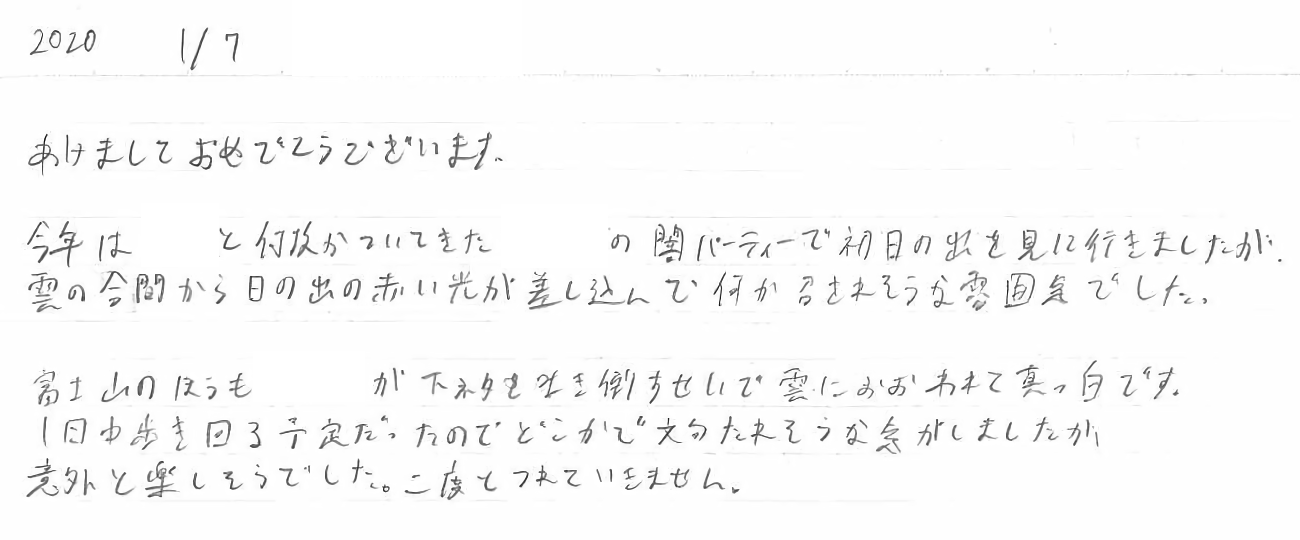 2020 1/7
あけましておめでとうございます。
今年は と何故かついてきた の闇パーティーで初日の出を見に行きましたが、
雲の合間から日の出の赤い光が差し込んで何か召されそうな雰囲気でした。
富士山のほうも が下ネタを吐き倒すせいで雲におおわれて真っ白です。
1日中歩き回る予定だったのでどこかで文句たれそうな気がしましたが
意外と楽しそうでした。二度とつれていきません。